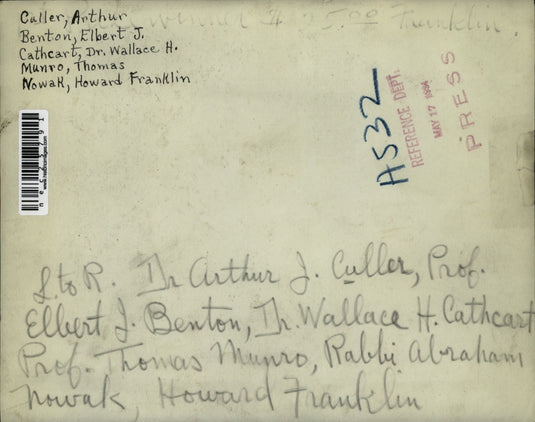 winner # 25.00 Franklin
Culler, Arthur
Benton, Elbert J.
Cathcart, Dr. Wallace H.
Munro, Thomas
Nowak, Howard Franklin
A532
REFERENCE DEPT.
MAY 17 1934
PRESS
L. to R. Dr Arthur J. Culler, Prof.
Elbert J. Benton, Dr. Wallace H. Cathcart
Prof. Thomas Munro, Rabbi Abraham
Nowak, Howard Franklin